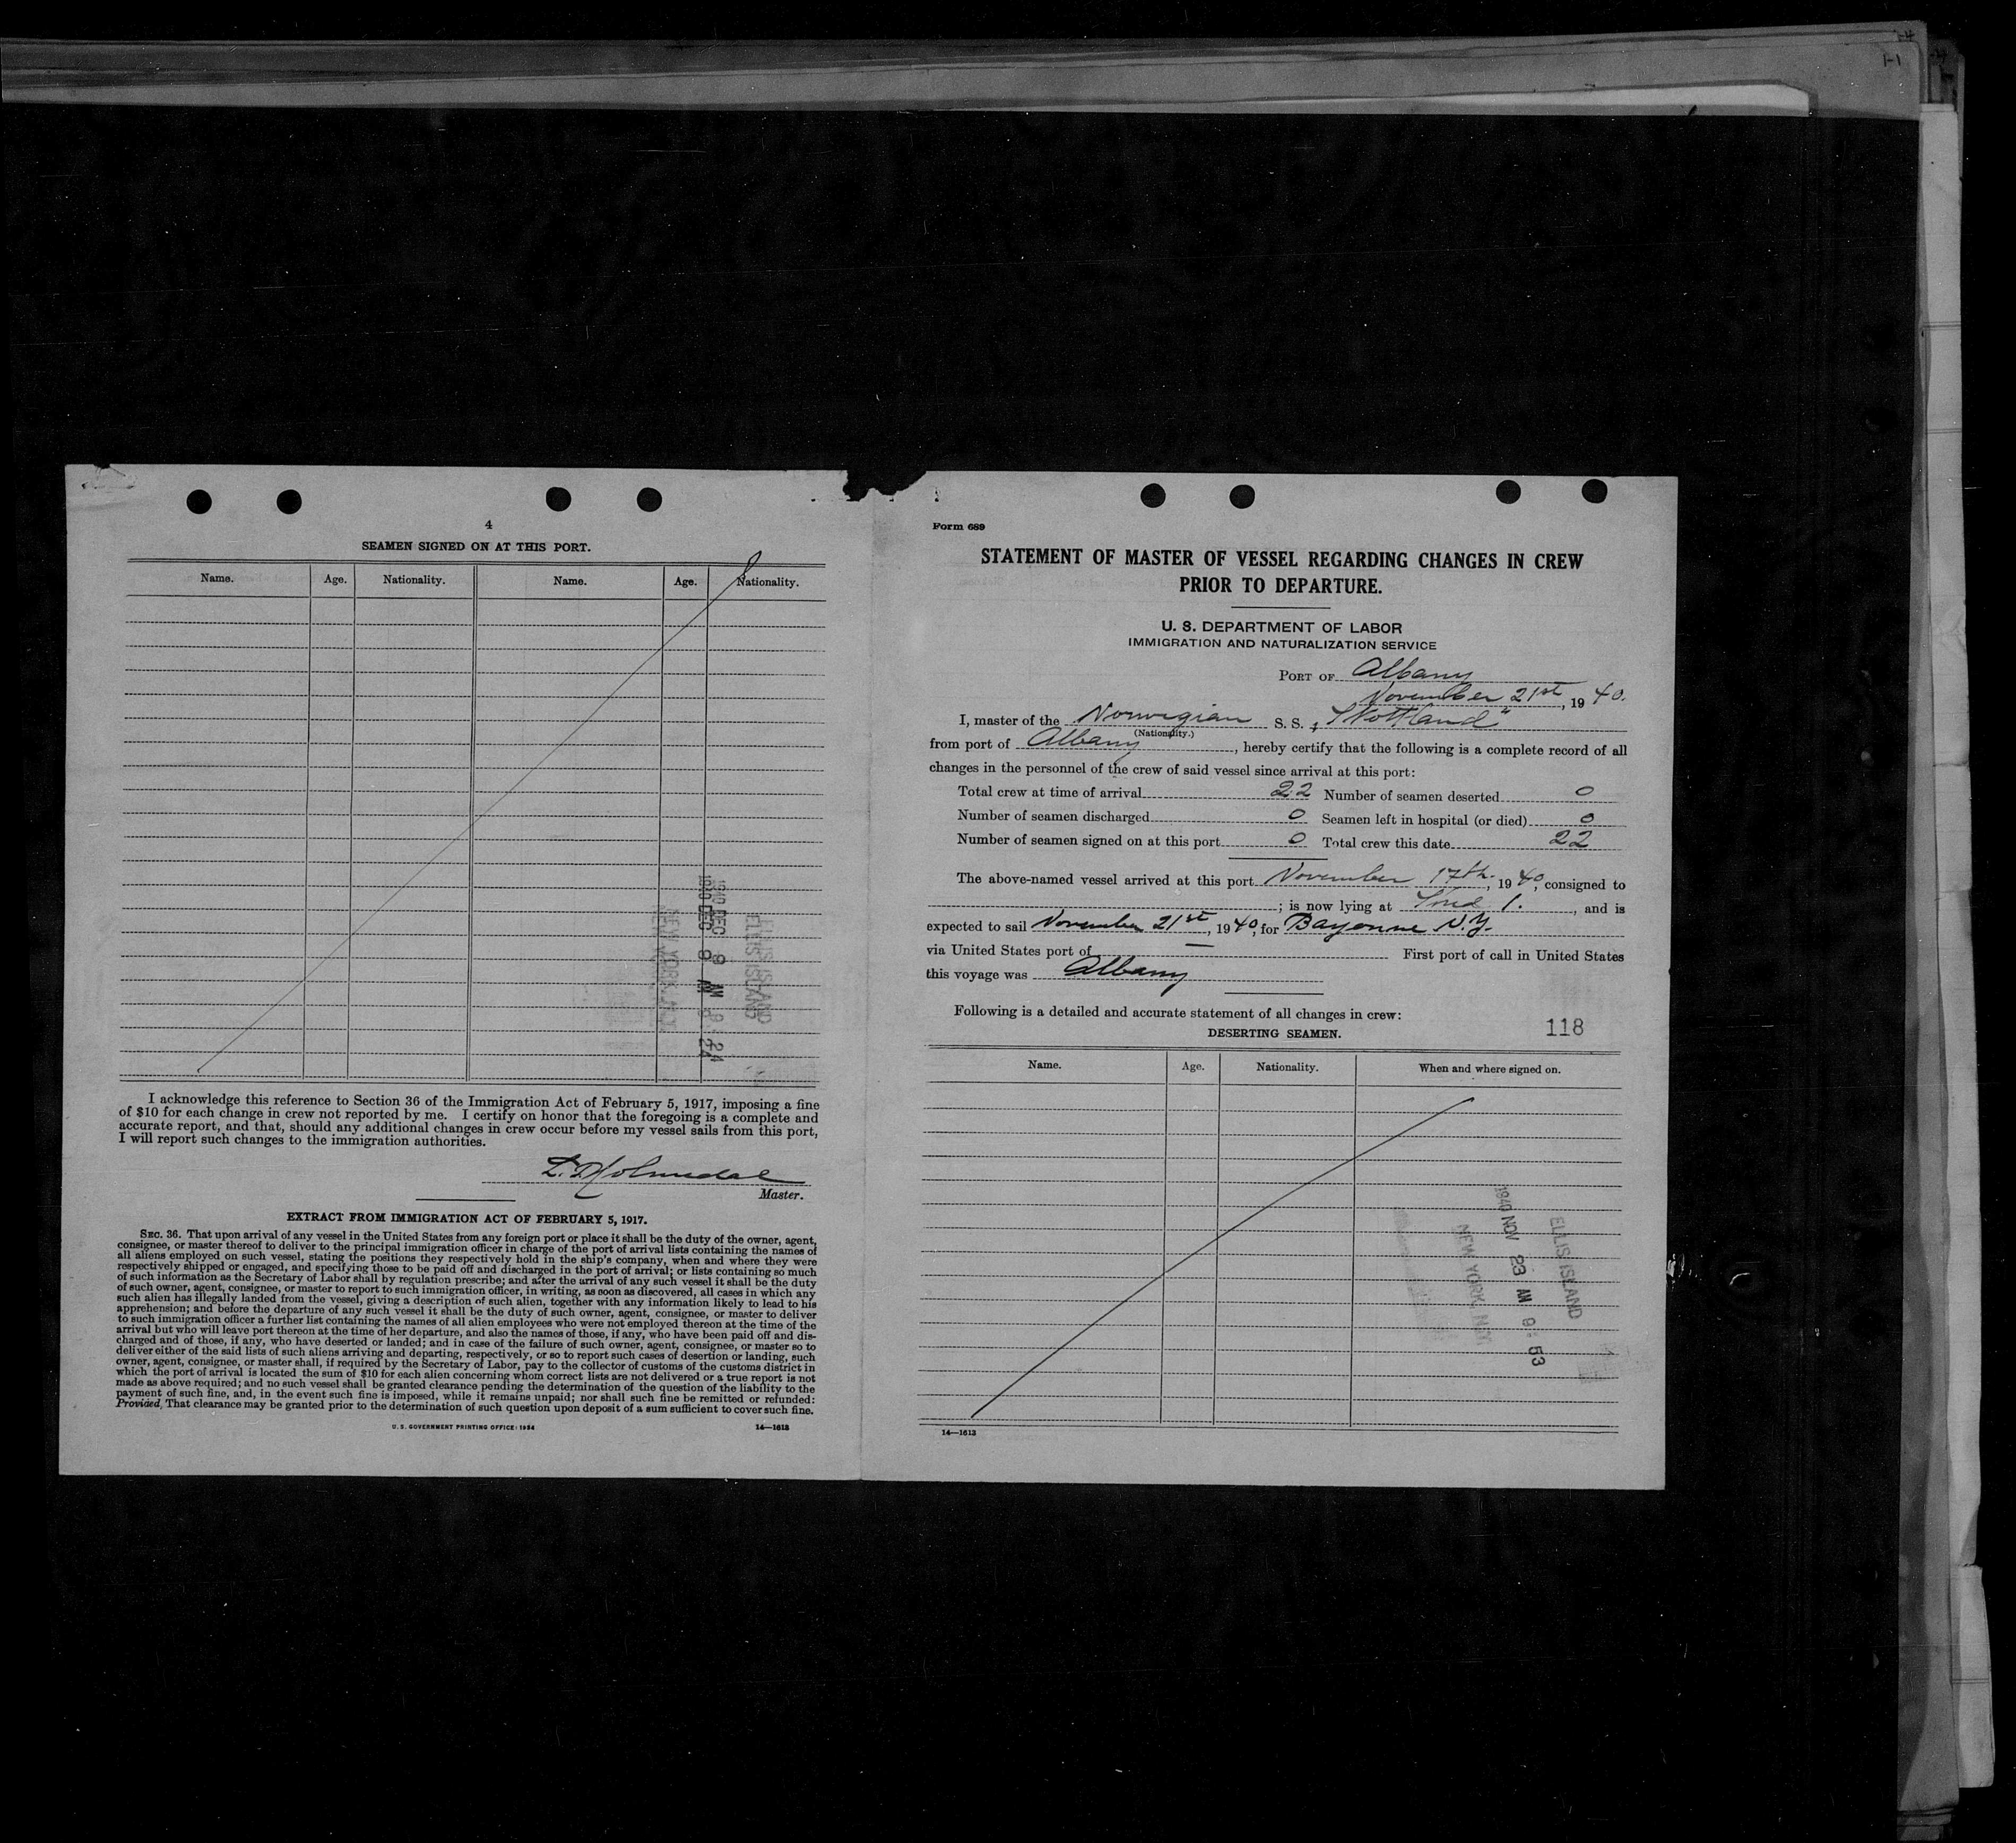 4
SEAMEN SIGNED ON AT THIS PORT.
Name. Age. Nationality. Name. Age. Nationality.
1940 DEC 9 AM 9:24
ELLIS ISLAND
I acknowledge this reference to Section 36 of the Immigration Act of February 5, 1917, imposing a fine
of $10 for each change in crew not reported by me. I certify on honor that the foregoing is a complete and
accurate report, and that, should any additional changes in crew occur before my vessel sails from this port,
I will report such changes to the immigration authorities.
Holmedal
Master.
EXTRACT FROM IMMIGRATION ACT OF FEBRUARY 5, 1917.
SEC. 36. That upon arrival of any vessel in the United States from any foreign port or place it shall be the duty of the owner, agent,
consignee, or master thereof to deliver to the principal immigration officer in charge of the port of arrival lists containing the names of
all aliens employed on such vessel, stating the positions they respectively hold in the ship's company, when and where they were
respectively shipped or engaged, and specifying those to be paid off and discharged in the port of arrival; or lists containing so much
of such information as the Secretary of Labor shall by regulation prescribe; and after the arrival of any such vessel it shall be the duty
of such owner, agent, consignee, or master to report to such immigration officer, in writing, as soon as discovered, all cases in which any
such alien has illegally landed from the vessel, giving a description of such alien, together with any information likely to lead to his
apprehension; and before the departure of any such vessel it shall be the duty of such owner, agent, consignee, or master to deliver
to such immigration officer a further list containing the names of all alien employees who were not employed thereon at the time of the
arrival but who will leave port thereon at the time of her departure, and also the names of those, if any, who have been paid off and dis-
charged and of those, if any, who have deserted or landed; and in case of the failure of such owner, agent, consignee, or master so to
deliver either of the said lists of such aliens arriving and departing, respectively, or so to report such cases of desertion or landing, such
owner, agent, consignee, or master shall, if required by the Secretary of Labor, pay to the collector of customs of the customs district in
which the port of arrival is located the sum of $10 for each alien concerning whom correct lists are not delivered or a true report is not
made as above required; and no such vessel shall be granted clearance pending the determination of the question of the liability to the
payment of such fine, and, in the event such fine is imposed, while it remains unpaid; nor shall such fine be remitted or refunded:
Provided, That clearance may be granted prior to the determination of such question upon deposit of a sum sufficient to cover such fine.
U. S. GOVERNMENT PRINTING OFFICE: 1934 14—1613
Form 689
STATEMENT OF MASTER OF VESSEL REGARDING CHANGES IN CREW
PRIOR TO DEPARTURE.
U. S. DEPARTMENT OF LABOR
IMMIGRATION AND NATURALIZATION SERVICE
PORT OF Albany
November 21st, 1940.
I, master of the Norwegian S. S. "Skottland"
(Nationality.)
from port of Albany, hereby certify that the following is a complete record of all
changes in the personnel of the crew of said vessel since arrival at this port:
Total crew at time of arrival 22 Number of seamen deserted 0
Number of seamen discharged 0 Seamen left in hospital (or died) 0
Number of seamen signed on at this port 0 Total crew this date 22
The above-named vessel arrived at this port November 17th, 1940, consigned to
; is now lying at 1., and is
expected to sail November 21st, 1940, for Bayonne N.Y.
via United States port of — First port of call in United States
this voyage was Albany
Following is a detailed and accurate statement of all changes in crew:
118
DESERTING SEAMEN.
Name. Age. Nationality. When and where signed on.
ELLIS ISLAND
1940 NOV 23 AM 9:53
NEW YORK, N.Y.
14—1613
1-1